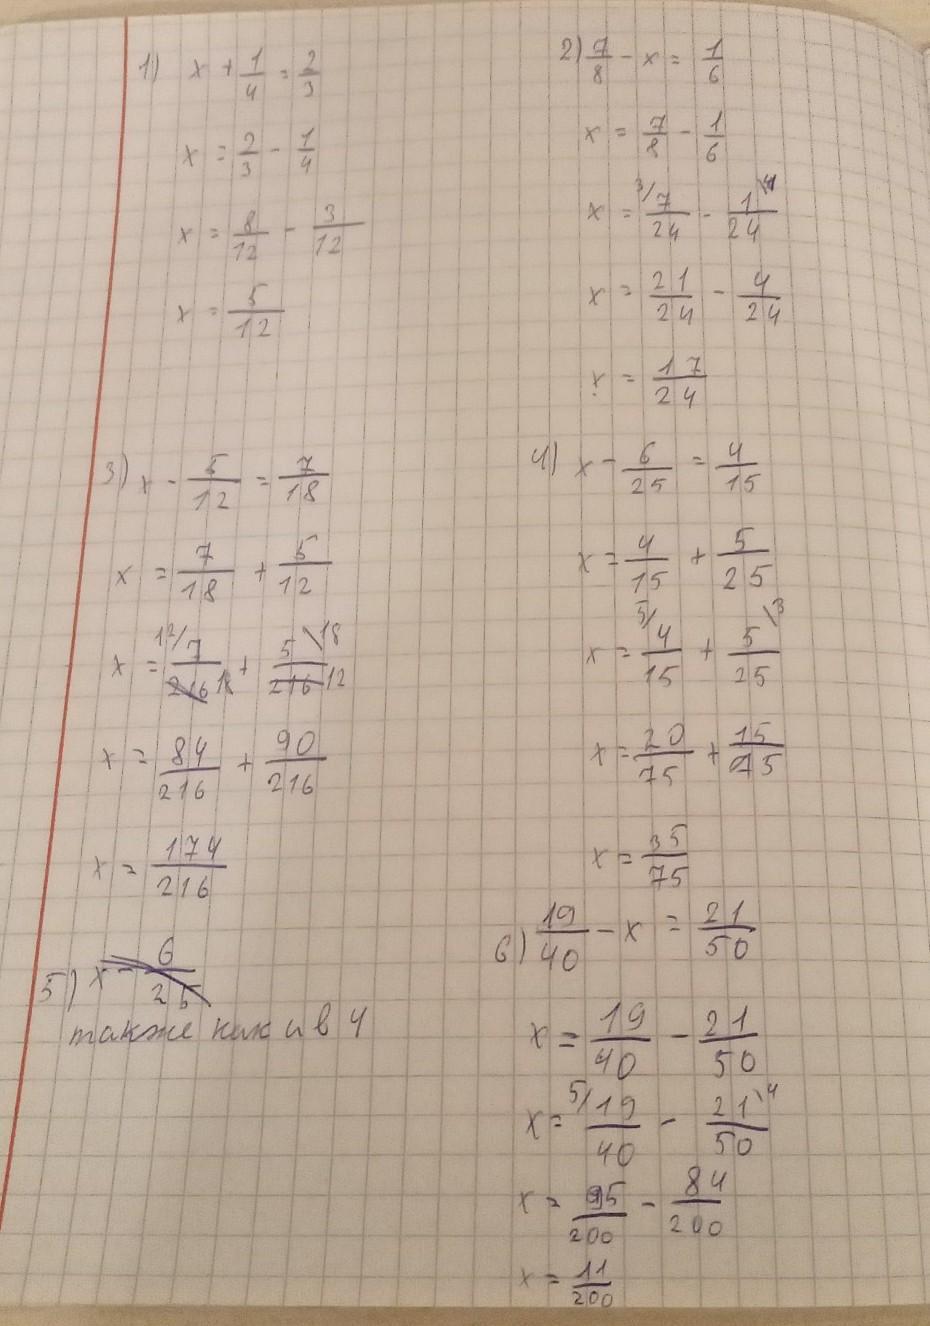 1) x + 1/4 = 2/3
x = 2/3 - 1/4
x = 8/12 - 3/12
x = 5/12
2) 7/8 - x = 1/6
x = 7/8 - 1/6
x = 3/ 7/24 - 1/24 \4
x = 21/24 - 4/24
x = 17/24
3) x - 5/12 = 7/18
x = 7/18 + 5/12
x = 12/ 7/18 + 5/12 \18
x = 84/216 + 90/216
x = 174/216
4) x - 6/25 = 4/15
x = 4/15 + 5/25
x = 5/ 4/15 + 5/25 \3
x = 20/75 + 15/75
x = 35/75
5) x - 6/25
также как и в 4
6) 19/40 - x = 21/50
x = 19/40 - 21/50
x = 5/ 19/40 - 21/50 \4
x = 95/200 - 84/200
x = 11/200